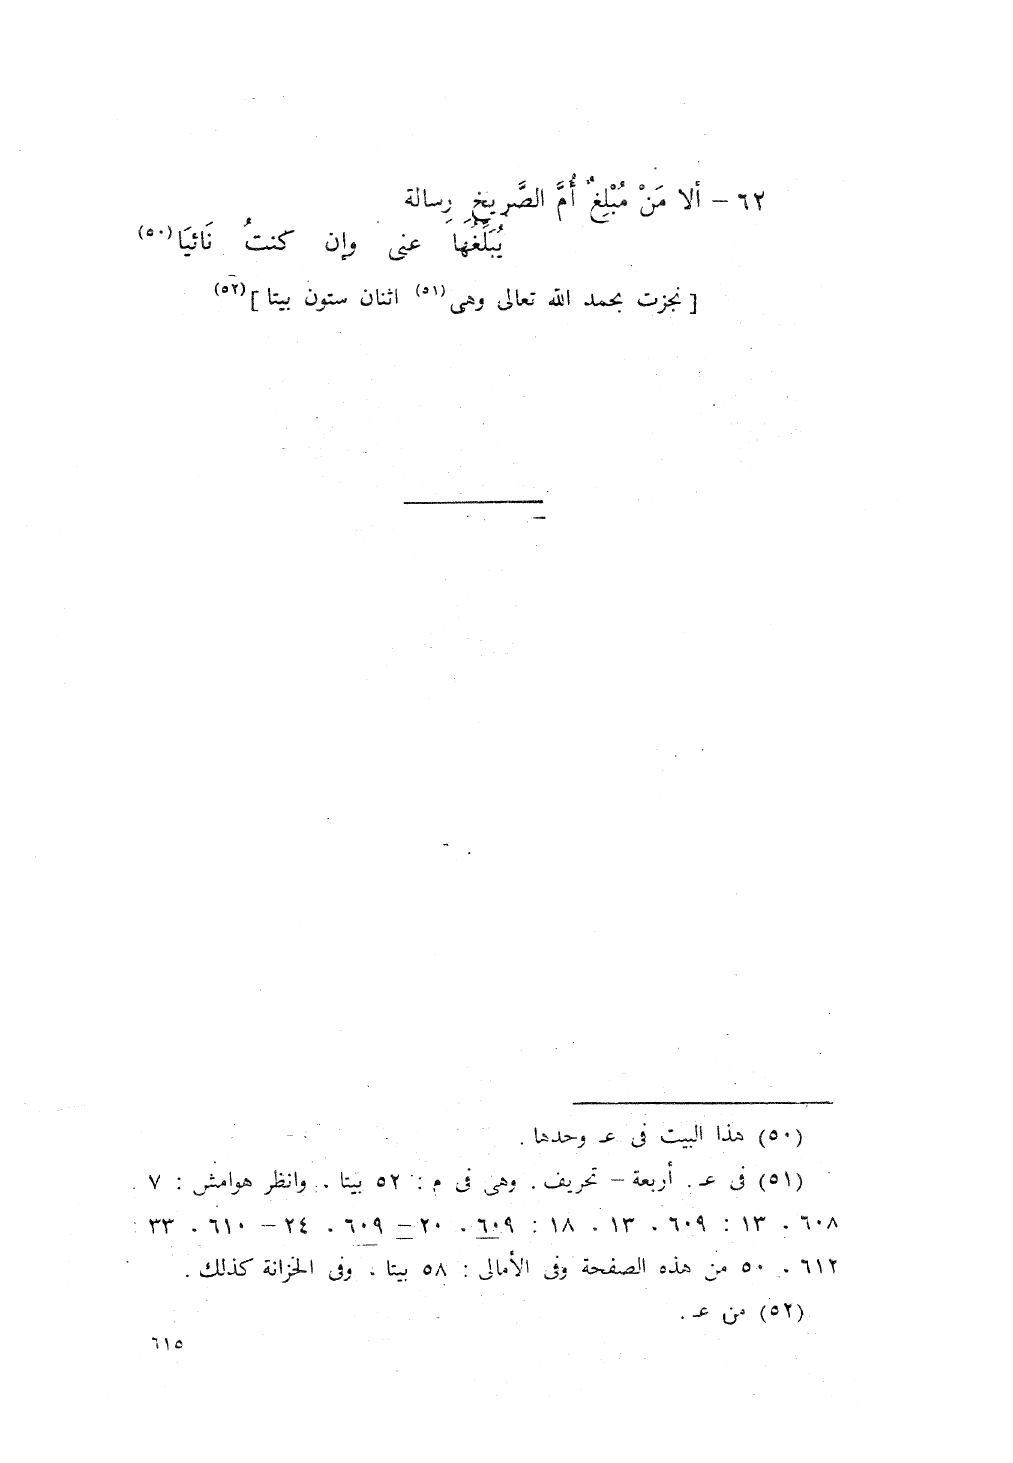 ٦٢ – ألا مَنْ مُبْلِغٌ أُمَّ الصَّرِيخِ رِسالة
يُبَلِّغُها عنى وإن كنتُ نَائيَا (٥٠)
[ نجزت بحمد الله تعالى وهى (٥١) اثنان ستون بيتا ] (٥٢)
(٥٠) هذا البيت فى عـ وحدها .
(٥١) فى عـ . أربعة – تحريف . وهى فى م : ٥٢ بيتا . وانظر هوامش : ٧ .
٦٠٨ . ١٣ : ٦٠٩ . ١٣ . ١٨ : ٦٠٩ . ٢٠ – ٦٠٩ . ٢٤ – ٦١٠ . ٣٣ :
٦١٢ . ٥٠ من هذه الصفحة وفى الأمالى : ٥٨ بيتا . وفى الخزانة كذلك .
(٥٢) من عـ .
٦١٥